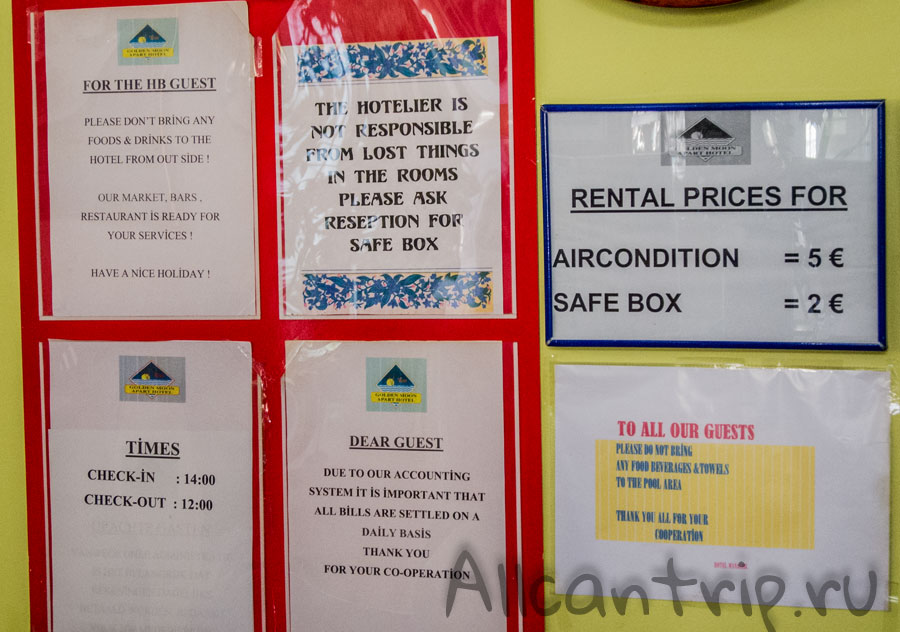 GOLDEN MOON
APART HOTEL
FOR THE HB GUEST
PLEASE DON'T BRİNG ANY
FOODS & DRİNKS TO THE
HOTEL FROM OUT SİDE !
OUR MARKET, BARS ,
RESTAURANT İS READY FOR
YOUR SERVİCES !
HAVE A NİCE HOLİDAY !
THE HOTELIER IS
NOT RESPONSIBLE
FROM LOST THINGS
IN THE ROOMS
PLEASE ASK
RESEPTION FOR
SAFE BOX
GOLDEN MOON
APART HOTEL
RENTAL PRICES FOR
AIRCONDITION = 5 €
SAFE BOX = 2 €
GOLDEN MOON
APART HOTEL
TİMES
CHECK-İN : 14:00
CHECK-OUT : 12:00
GOLDEN MOON
APART HOTEL
DEAR GUEST
DUE TO OUR ACCOUNTİNG
SYSTEM İT İS İMPORTANT THAT
ALL BİLLS ARE SETTLED ON A
DAİLY BASİS
THANK YOU
FOR YOUR CO-OPERATİON
TO ALL OUR GUESTS
PLEASE DO NOT BRİNG
ANY FOOD BEVERAGES &TOWELS
TO THE POOL AREA
THANK YOU ALL FOR YOUR
COOPERATİON
Allcantrip.ru